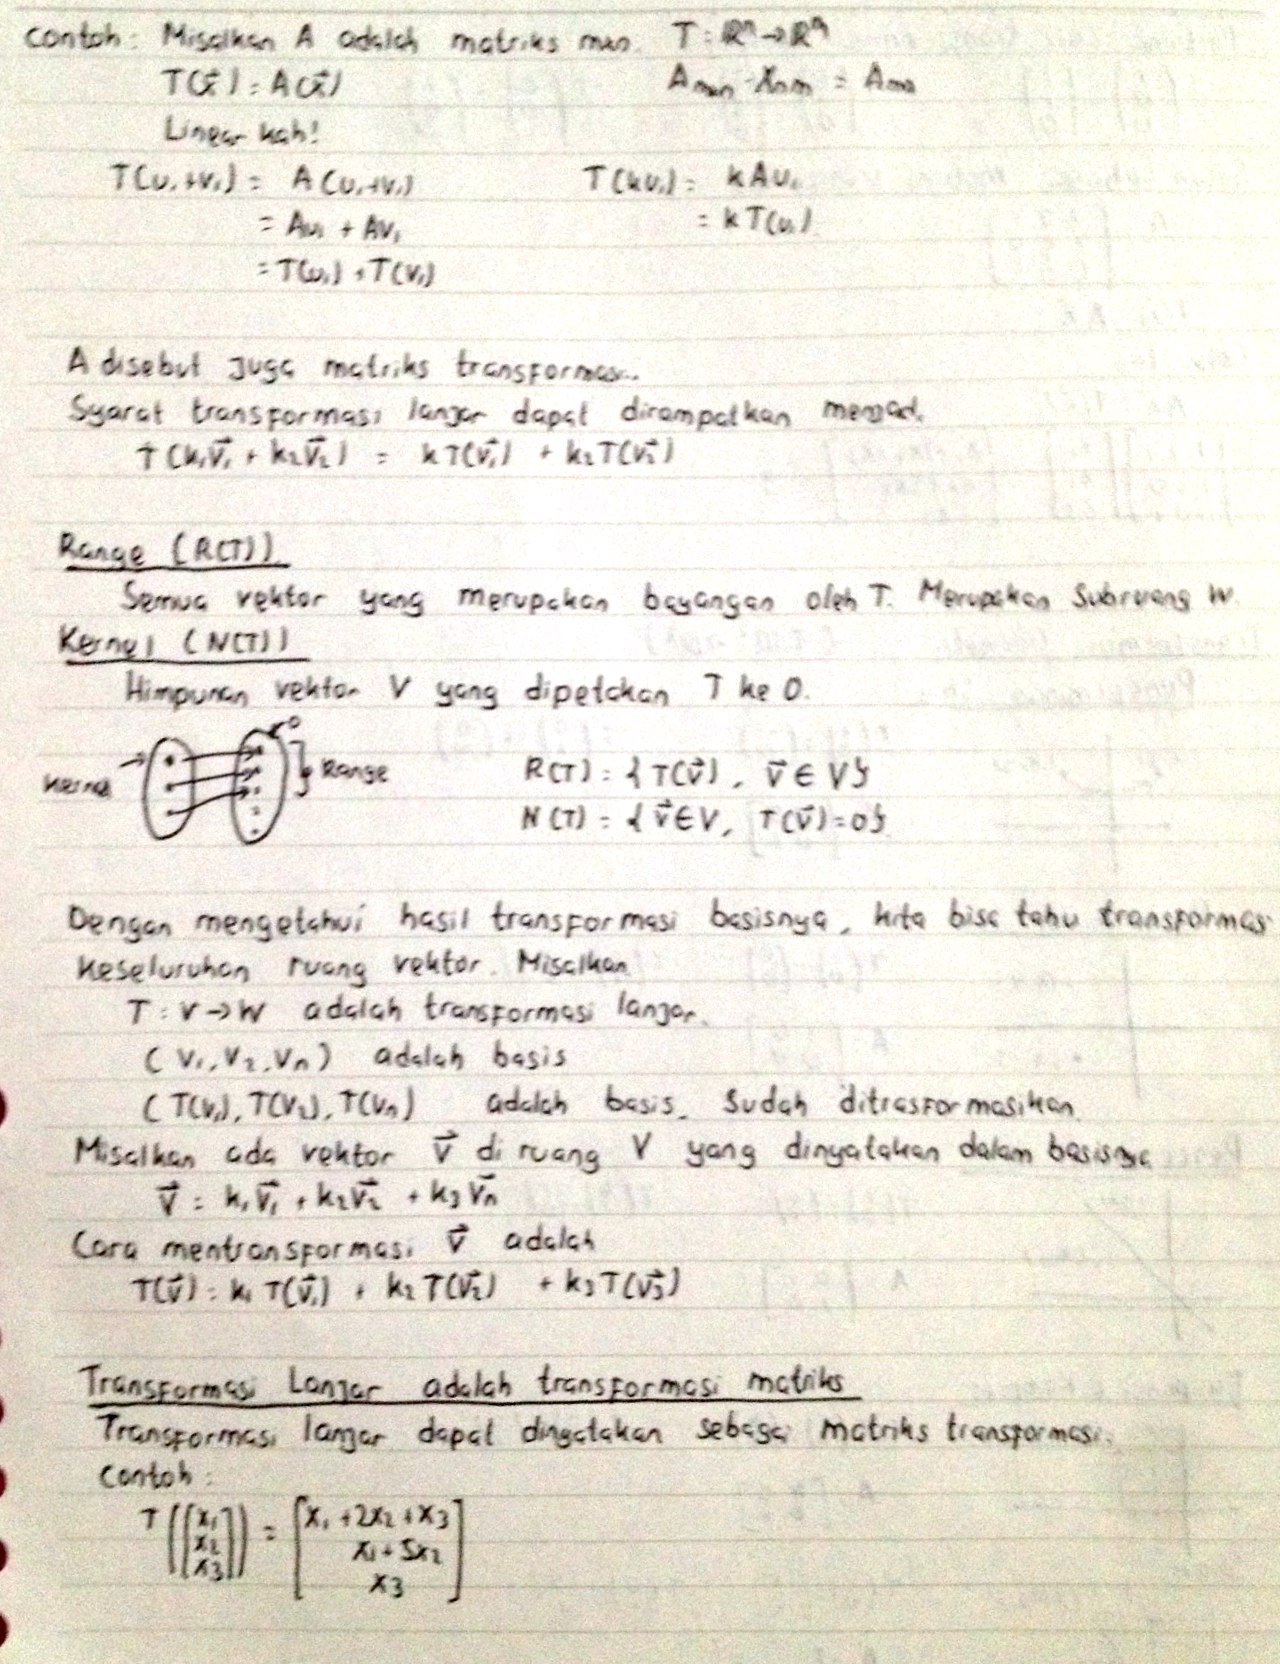 Contoh: Misalkan A adalah matriks mxn. T: Rⁿ→Rⁿ
T(x⃗) = A(x⃗)
Linear kah!
T(u₁+v₁) = A(u₁+v₁) T(ku₁) = kAu₁
= Au₁ + Av₁ = kT(u₁)
= T(u₁) + T(v₁)
A disebut juga matriks transformasi.
Syarat transformasi lanjar dapat dirampatkan menjadi
T(k₁v⃗₁ + k₂v⃗₂) = kT(v⃗₁) + k₂T(v⃗₂)
Range (R(T))
Semua vektor yang merupakan bayangan oleh T. Merupakan Subruang W.
Kernel (N(T))
Himpunan vektor V yang dipetakan T ke 0.
0
Kernel Range R(T) = { T(v⃗), v⃗ ∈ V}
N(T) = { v⃗∈V, T(v⃗)=0}
Dengan mengetahui hasil transformasi basisnya, kita bisa tahu transformasi
keseluruhan ruang vektor. Misalkan
T: V→W adalah transformasi lanjar.
(V₁, V₂, Vₙ) adalah basis
(T(V₁), T(V₂), T(Vₙ) adalah basis. Sudah ditrasformasikan.
Misalkan ada vektor v⃗ di ruang V yang dinyatakan dalam basisnya
v⃗ = k₁v⃗₁ + k₂v⃗₂ + k₃v⃗ₙ
Cara mentransformasi v⃗ adalah
T(v⃗) = k₁T(v⃗₁) + k₂T(v⃗₂) + k₃T(v⃗₃)
Transformasi Lanjar adalah transformasi matriks
Transformasi lanjar dapat dinyatakan sebagai matriks transformasi.
Contoh:
T([x₁ = [x₁+2x₂+x₃
x₂ x₁+5x₂
x₃]) x₃]